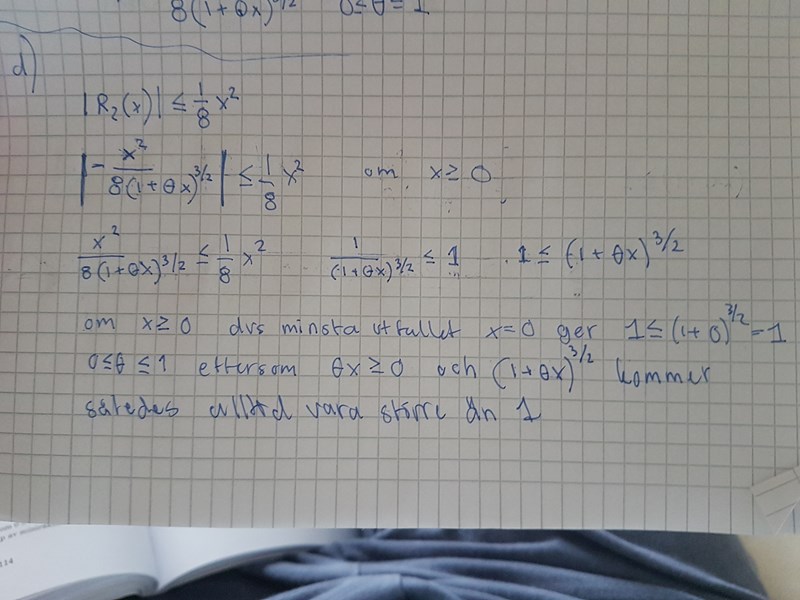 8(1+θx)^3/2 0≤θ≤1
d)
|R₂(x)| ≤ 1/8 x²
|- x²/8(1+θx)^3/2 | ≤ 1/8 x² om x≥0
x²/8(1+θx)^3/2 ≤ 1/8 x² 1/(1+θx)^3/2 ≤ 1 1 ≤ (1+θx)^3/2
om x≥0 dvs minsta utfallet x=0 ger 1≤(1+0)^3/2=1
0≤θ≤1 eftersom θx≥0 och (1+θx)^3/2 kommer
således alltid vara större än 1
114